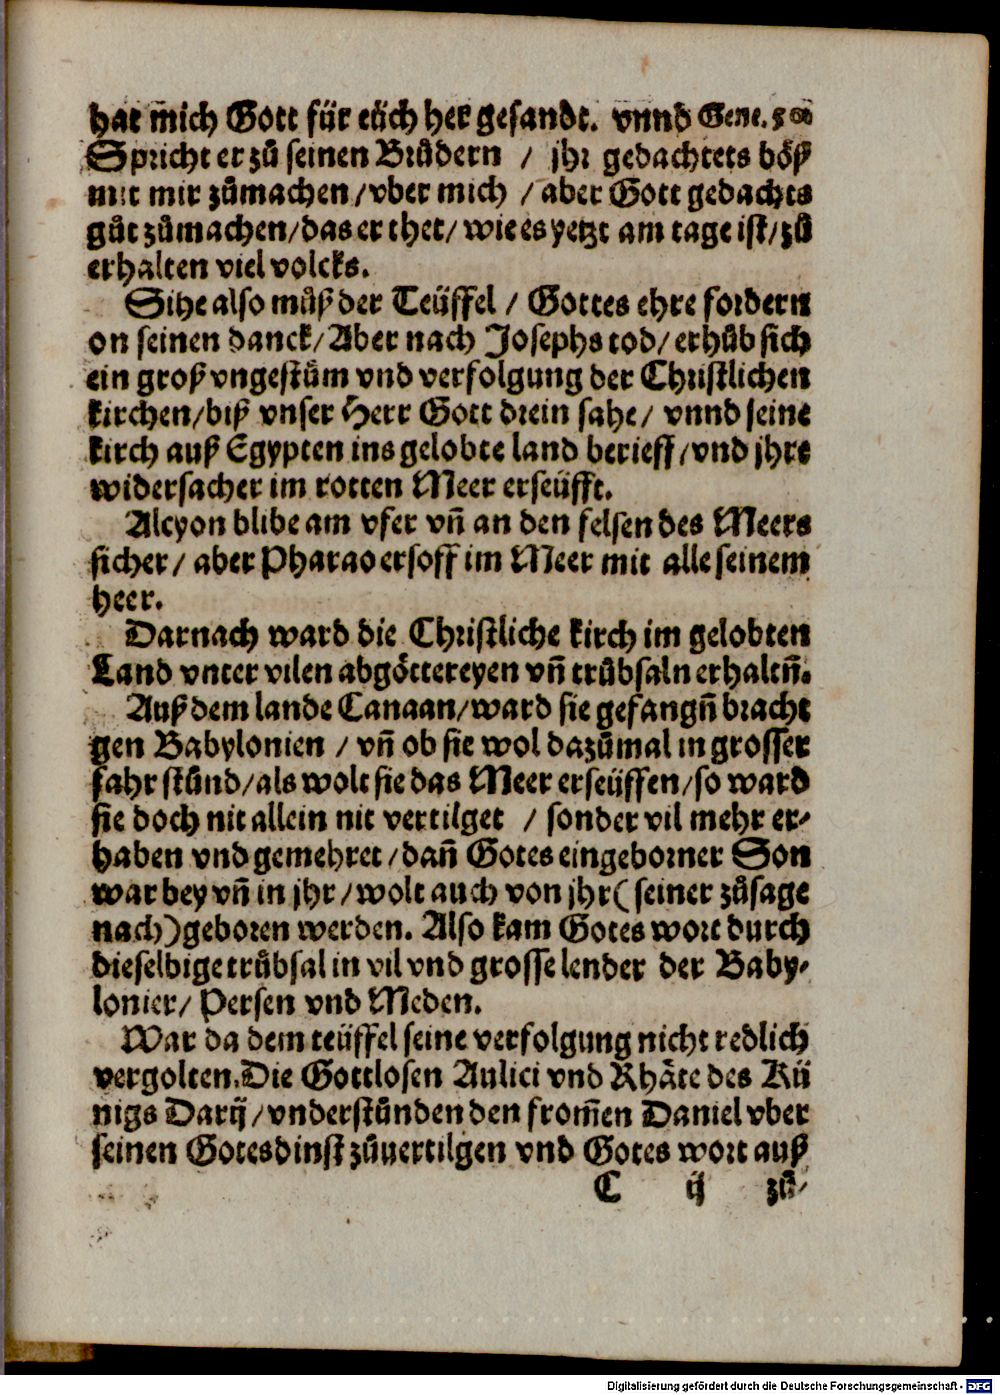 hat mich Gott für eüch her gesandt. vnnd Gene. 50
Spricht er zů seinen Brůdern / jhr gedachtets böß
mit mir zůmachen/vber mich / aber Gott gedachts
gůt zůmachen/das er thet/ wie es yetzt am tage ist/zů
erhalten viel volcks.
Sihe also můß der Teüffel / Gottes ehre fordern
on seinen danck/Aber nach Josephs tod/erhůb sich
ein groß vngestům vnd verfolgung der Christlichen
kirchen/biß vnser Herr Gott drein sahe/ vnnd seine
kirch auß Egypten ins gelobte land berieff/vnd jhre
widersacher im rotten Meer erseüfft.
Alcyon blibe am vfer vñ an den felsen des Meers
sicher/ aber Pharao ersoff im Meer mit alle seinem
heer.
Darnach ward die Christliche kirch im gelobten
Land vnter vilen abgöttereyen vñ trůbsaln erhaltñ.
Auß dem lande Canaan/ward sie gefangñ bracht
gen Babylonien / vñ ob sie wol dazůmal in grosser
fahr stůnd/als wolt sie das Meer erseüffen/so ward
sie doch nit allein nit vertilget / sonder vil mehr er-
haben vnd gemehret/dañ Gotes eingeborner Son
war bey vñ in jhr/wolt auch von jhr(seiner zůsage
nach)geboren werden. Also kam Gotes wort durch
dieselbige trůbsal in vil vnd grosse lender der Baby-
lonier/ Persen vnd Meden.
War da dem teüffel seine verfolgung nicht redlich
vergolten. Die Gottlosen Aulici vnd Rhäte des Kü
nigs Darij/vnderstůnden den from̃en Daniel vber
seinen Gotesdinst zůuertilgen vnd Gotes wort auß
C ij zů-
Digitalisierung gefördert durch die Deutsche Forschungsgemeinschaft - DFG